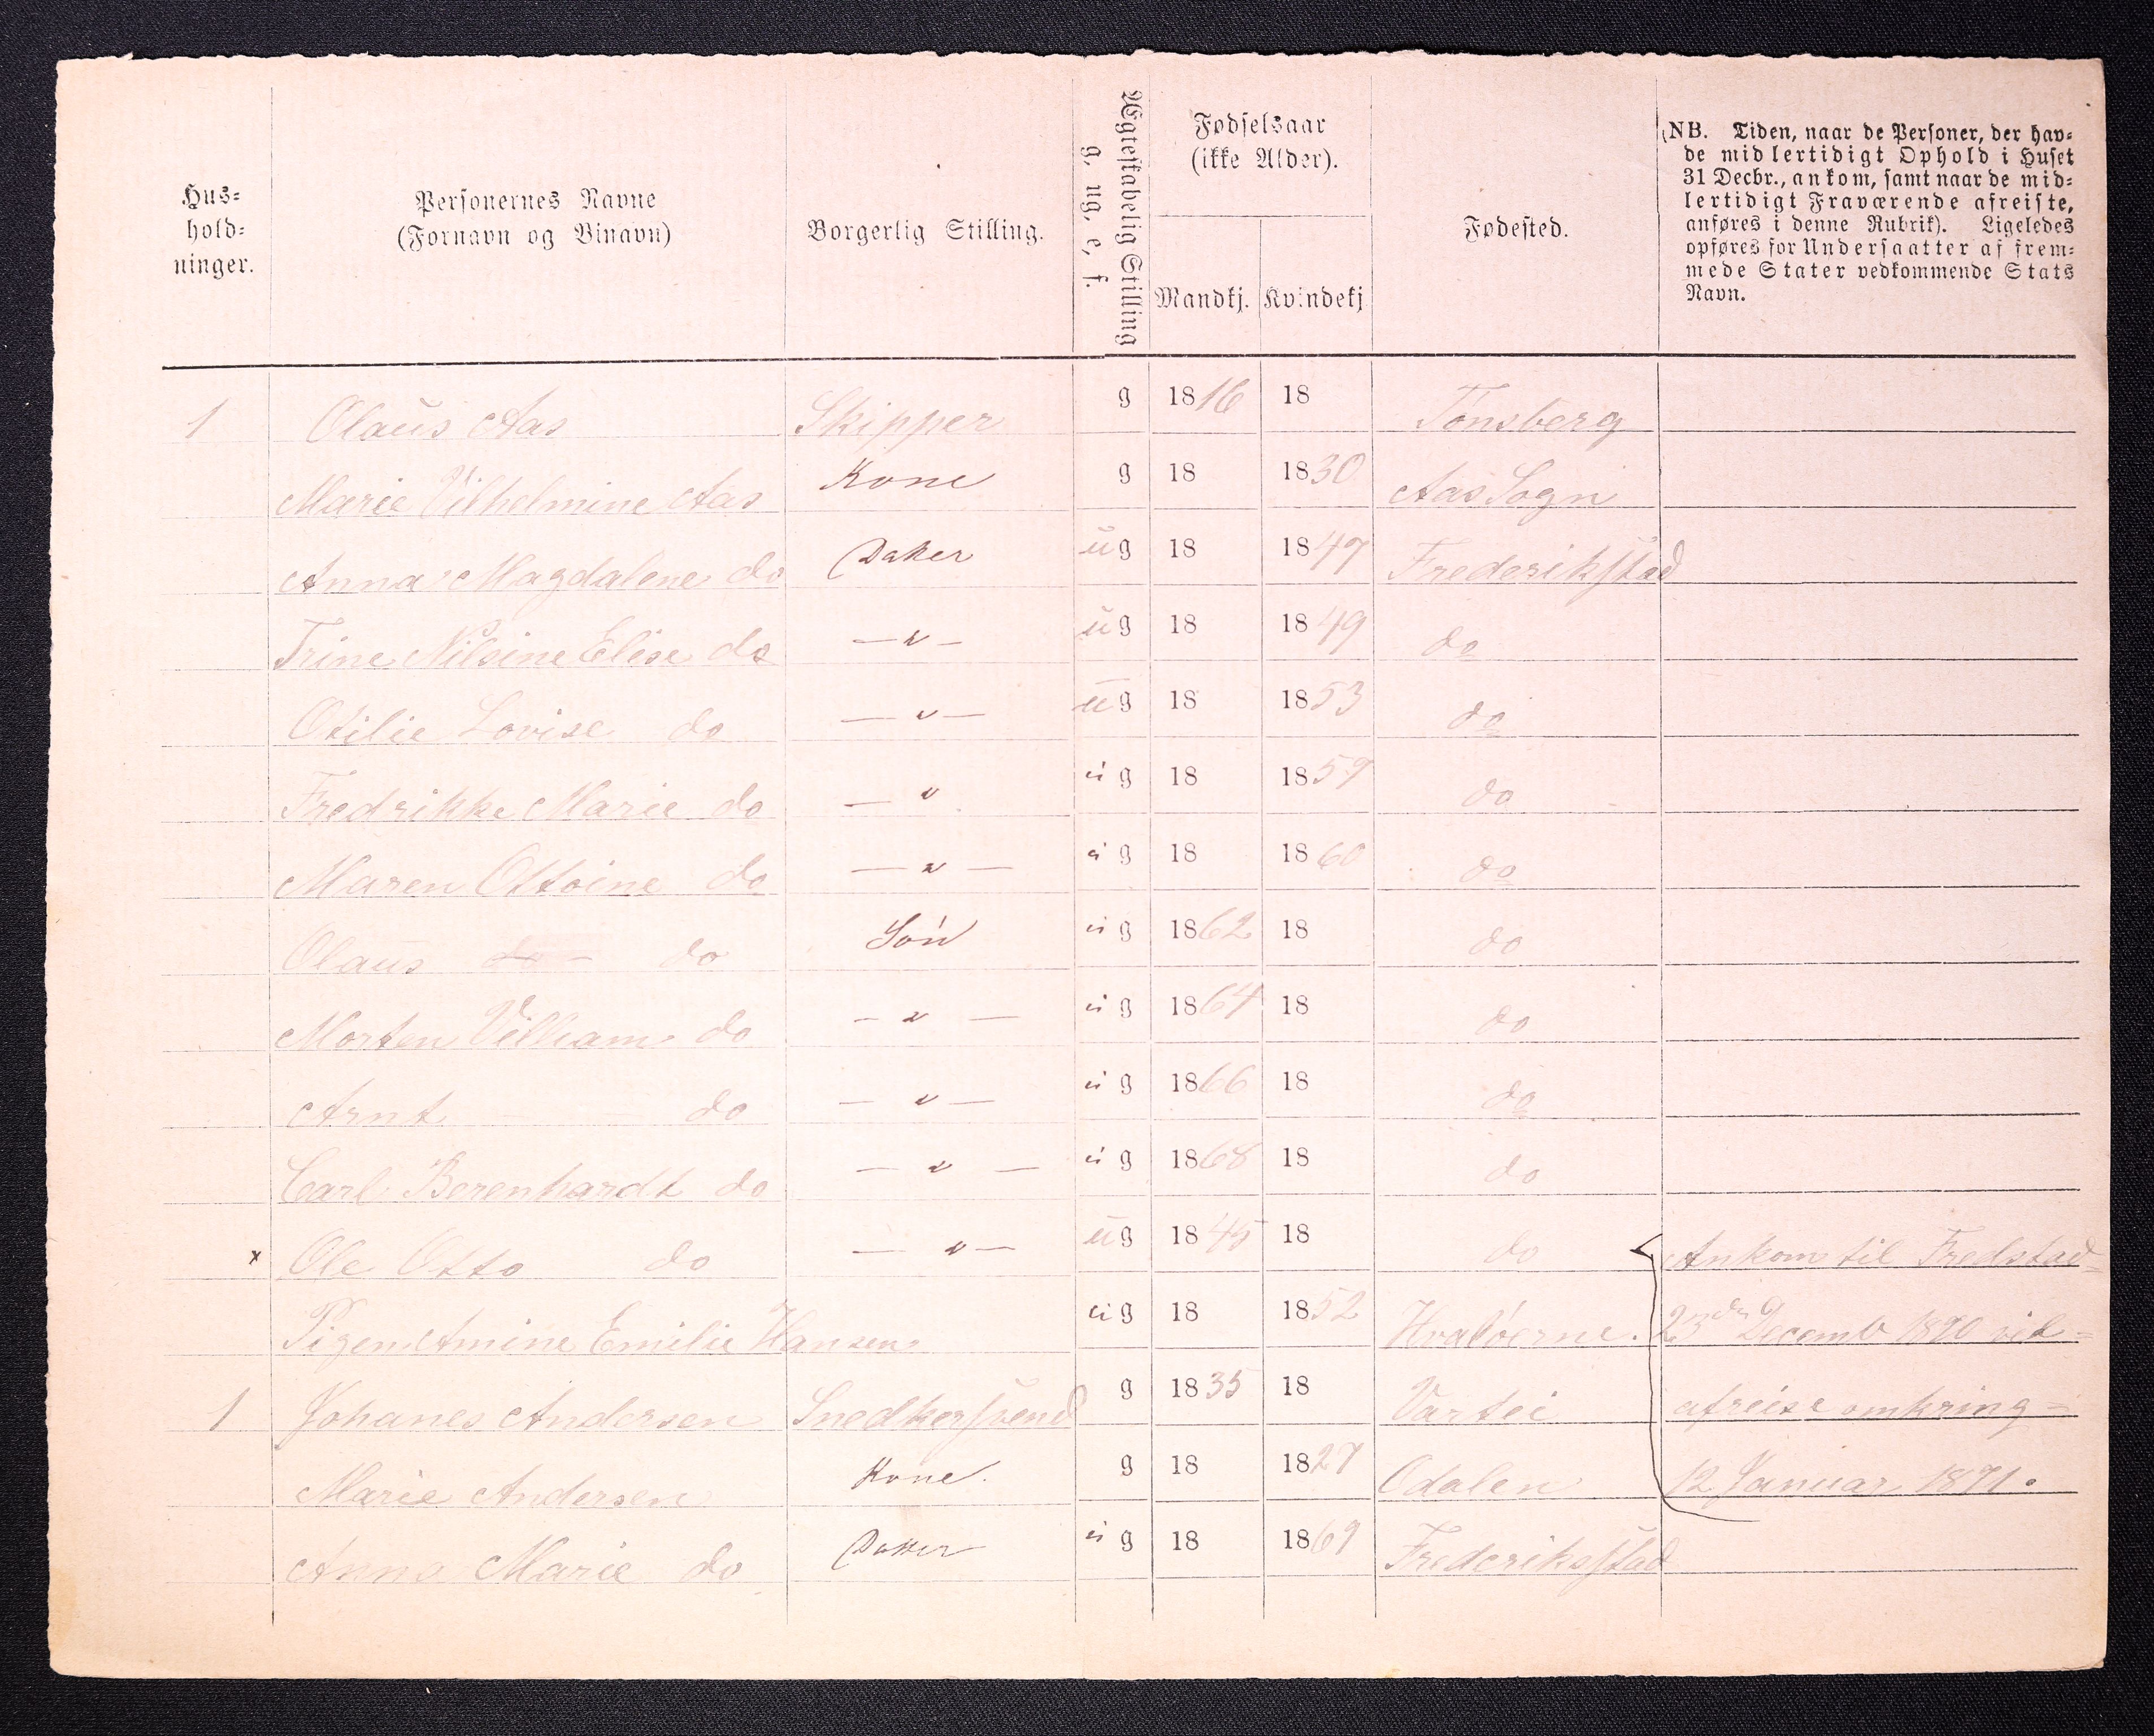 Hus-
hold-
ninger.
Personernes Navne
(Fornavn og Binavn)
Borgerlig Stilling.
Ægteskabelig Stilling
g, ug, e, f.
Fødselsaar
(ikke Alder).
Mandkj. Kvindekj
Fødested.
(NB. Tiden, naar de Personer, der hav-
de midlertidigt Ophold i Huset
31 Decbr., ankom, samt naar de mid-
lertidigt Fraværende afreiste,
anføres i denne Rubrik). Ligeledes
opføres for Undersaatter af frem-
mede Stater vedkommende Stats
Navn.
1 Olaus Aas Skipper g 1816 18 Tönsberg
Marie Vilhelmine Aas Kone g 18 1830 Aas Sogn
Anna Magdalene do Datter ug 18 1847 Frederikstad
Trine Nilsine Elise do — " — ug 18 1849 do
Otilie Lovise do — " — ug 18 1853 do
Fredrikke Marie do — " ug 18 1857 do
Maren Ottoine do — " — ug 18 1860 do
Olaus do Sön ug 1862 18 do
Morten Villiam do — " — ug 1864 18 do
Arnt do — " — ug 1866 18 do
Carl Berenhardt do — " — ug 1868 18 do
x Ole Otto do — " — ug 1845 18 do Ankom til Fredstad
Pigen Amine Emilie Hansen ug 18 1852 Hvalöerne. 23de Decemb 1870 vil
1 Johanes Andersen Snedkersvend g 1835 18 Vartei afreise omkring
Marie Andersen Kone. g 18 1827 Odalen 12 Januar 1871.
Anna Marie do Datter ug 18 1869 Frederiksstad